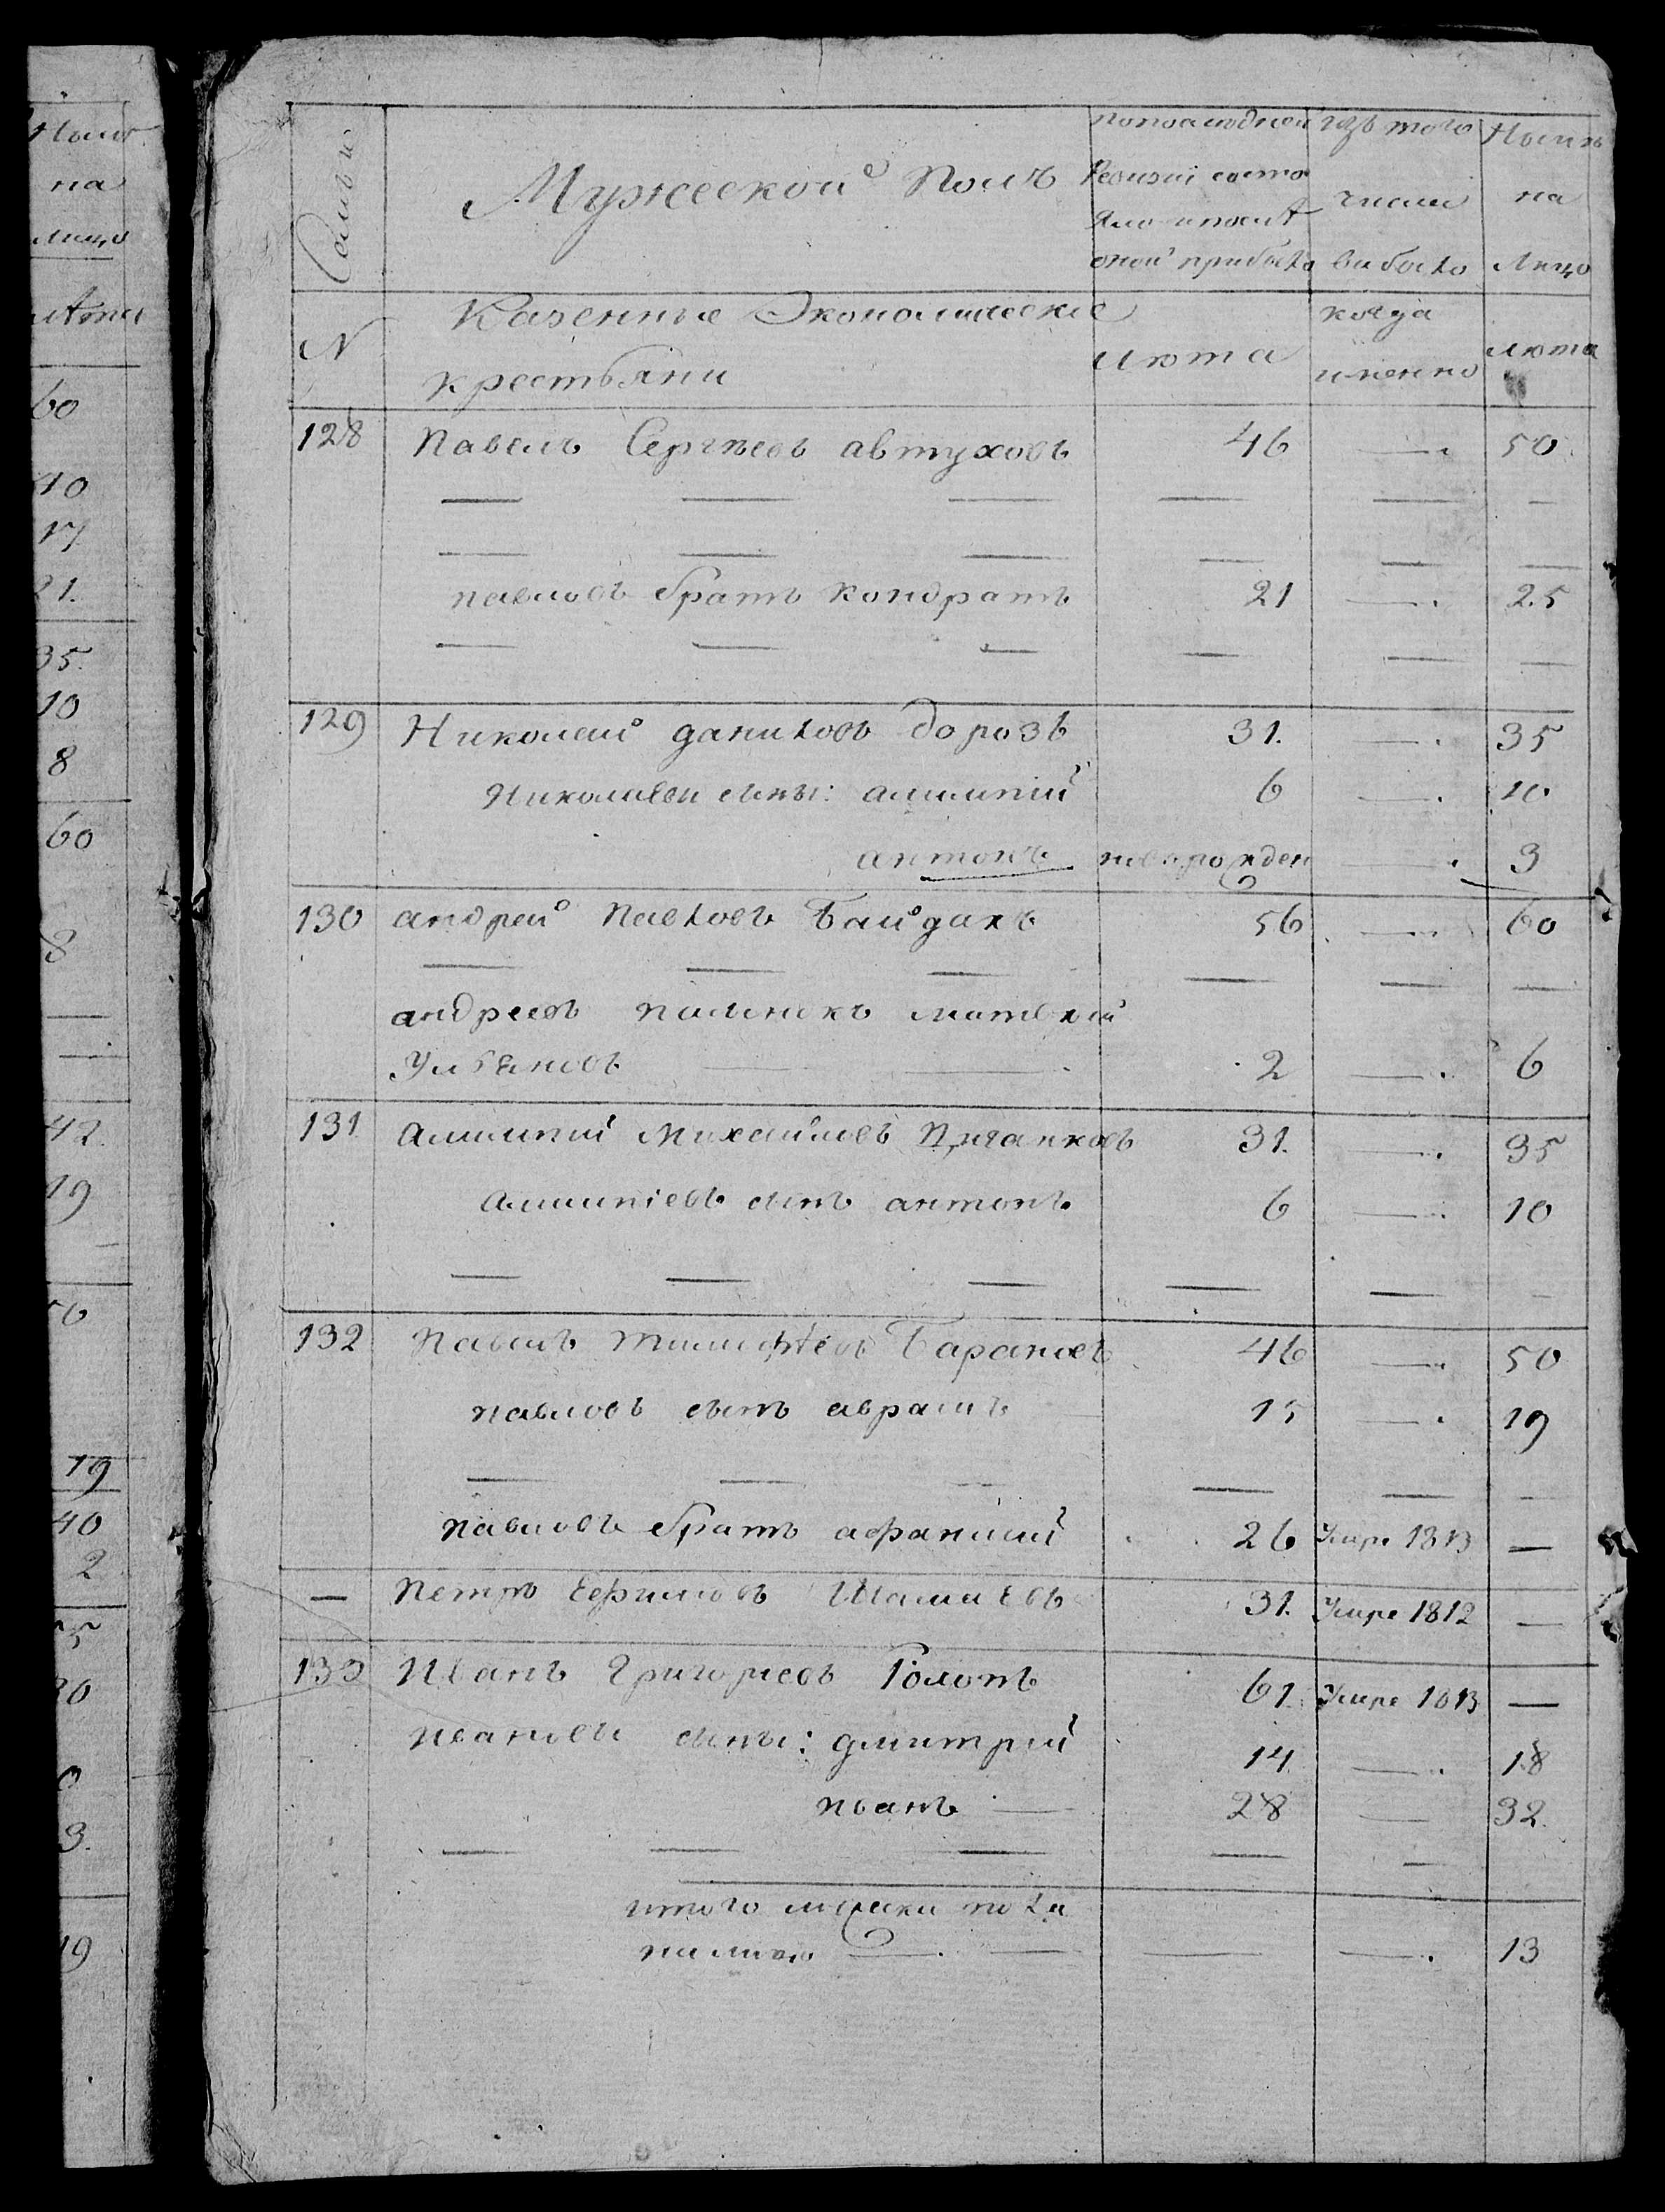 Ныне
на
лицо
лета
60
40
17
21.
35.
10
8
60
8
42.
19
56
19
40
2
3.
19
Семьи
Мужеской Полъ
попоследней
Ревизии состо
яло ипосле
оной прибыло
Изъ того
числа
выбыло
Ныне
на
Лицо
N
Казенные Экономические
крестьяни
лета
когда
именно
лета
128 Павелъ Сергеевъ автуховъ 46 — 50
павловъ братъ кондратъ 21 — 25
129 Николай даниловъ дорозъ 31. — 35
Николаевы сыны: алимпий 6 — 10.
антонъ новорожден — 3
130 андрей Павловъ Байдакъ 56 — 60
андреевъ племянъ матвей
Ульяновъ — 2 — 6
131 алимпий Михайловъ Цыганковъ 31. — 35
алимпіевъ сынъ антонъ 6 — 10
132 Павелъ тимофѣевъ Барановъ 46 — 50
павловъ сынъ аврамъ 15 — 19
павловъ братъ афанасий 26 Умре 1813 —
— Петръ Ефимовъ Шамаевъ 31. Умре 1812 —
133 Иванъ Григорьевъ Голотъ 61. Умре 1813 —
ивановы сыны: дмитрий 14 — 18
иванъ — 28 — 32.
итого мужеска пола
налицо — — — 13